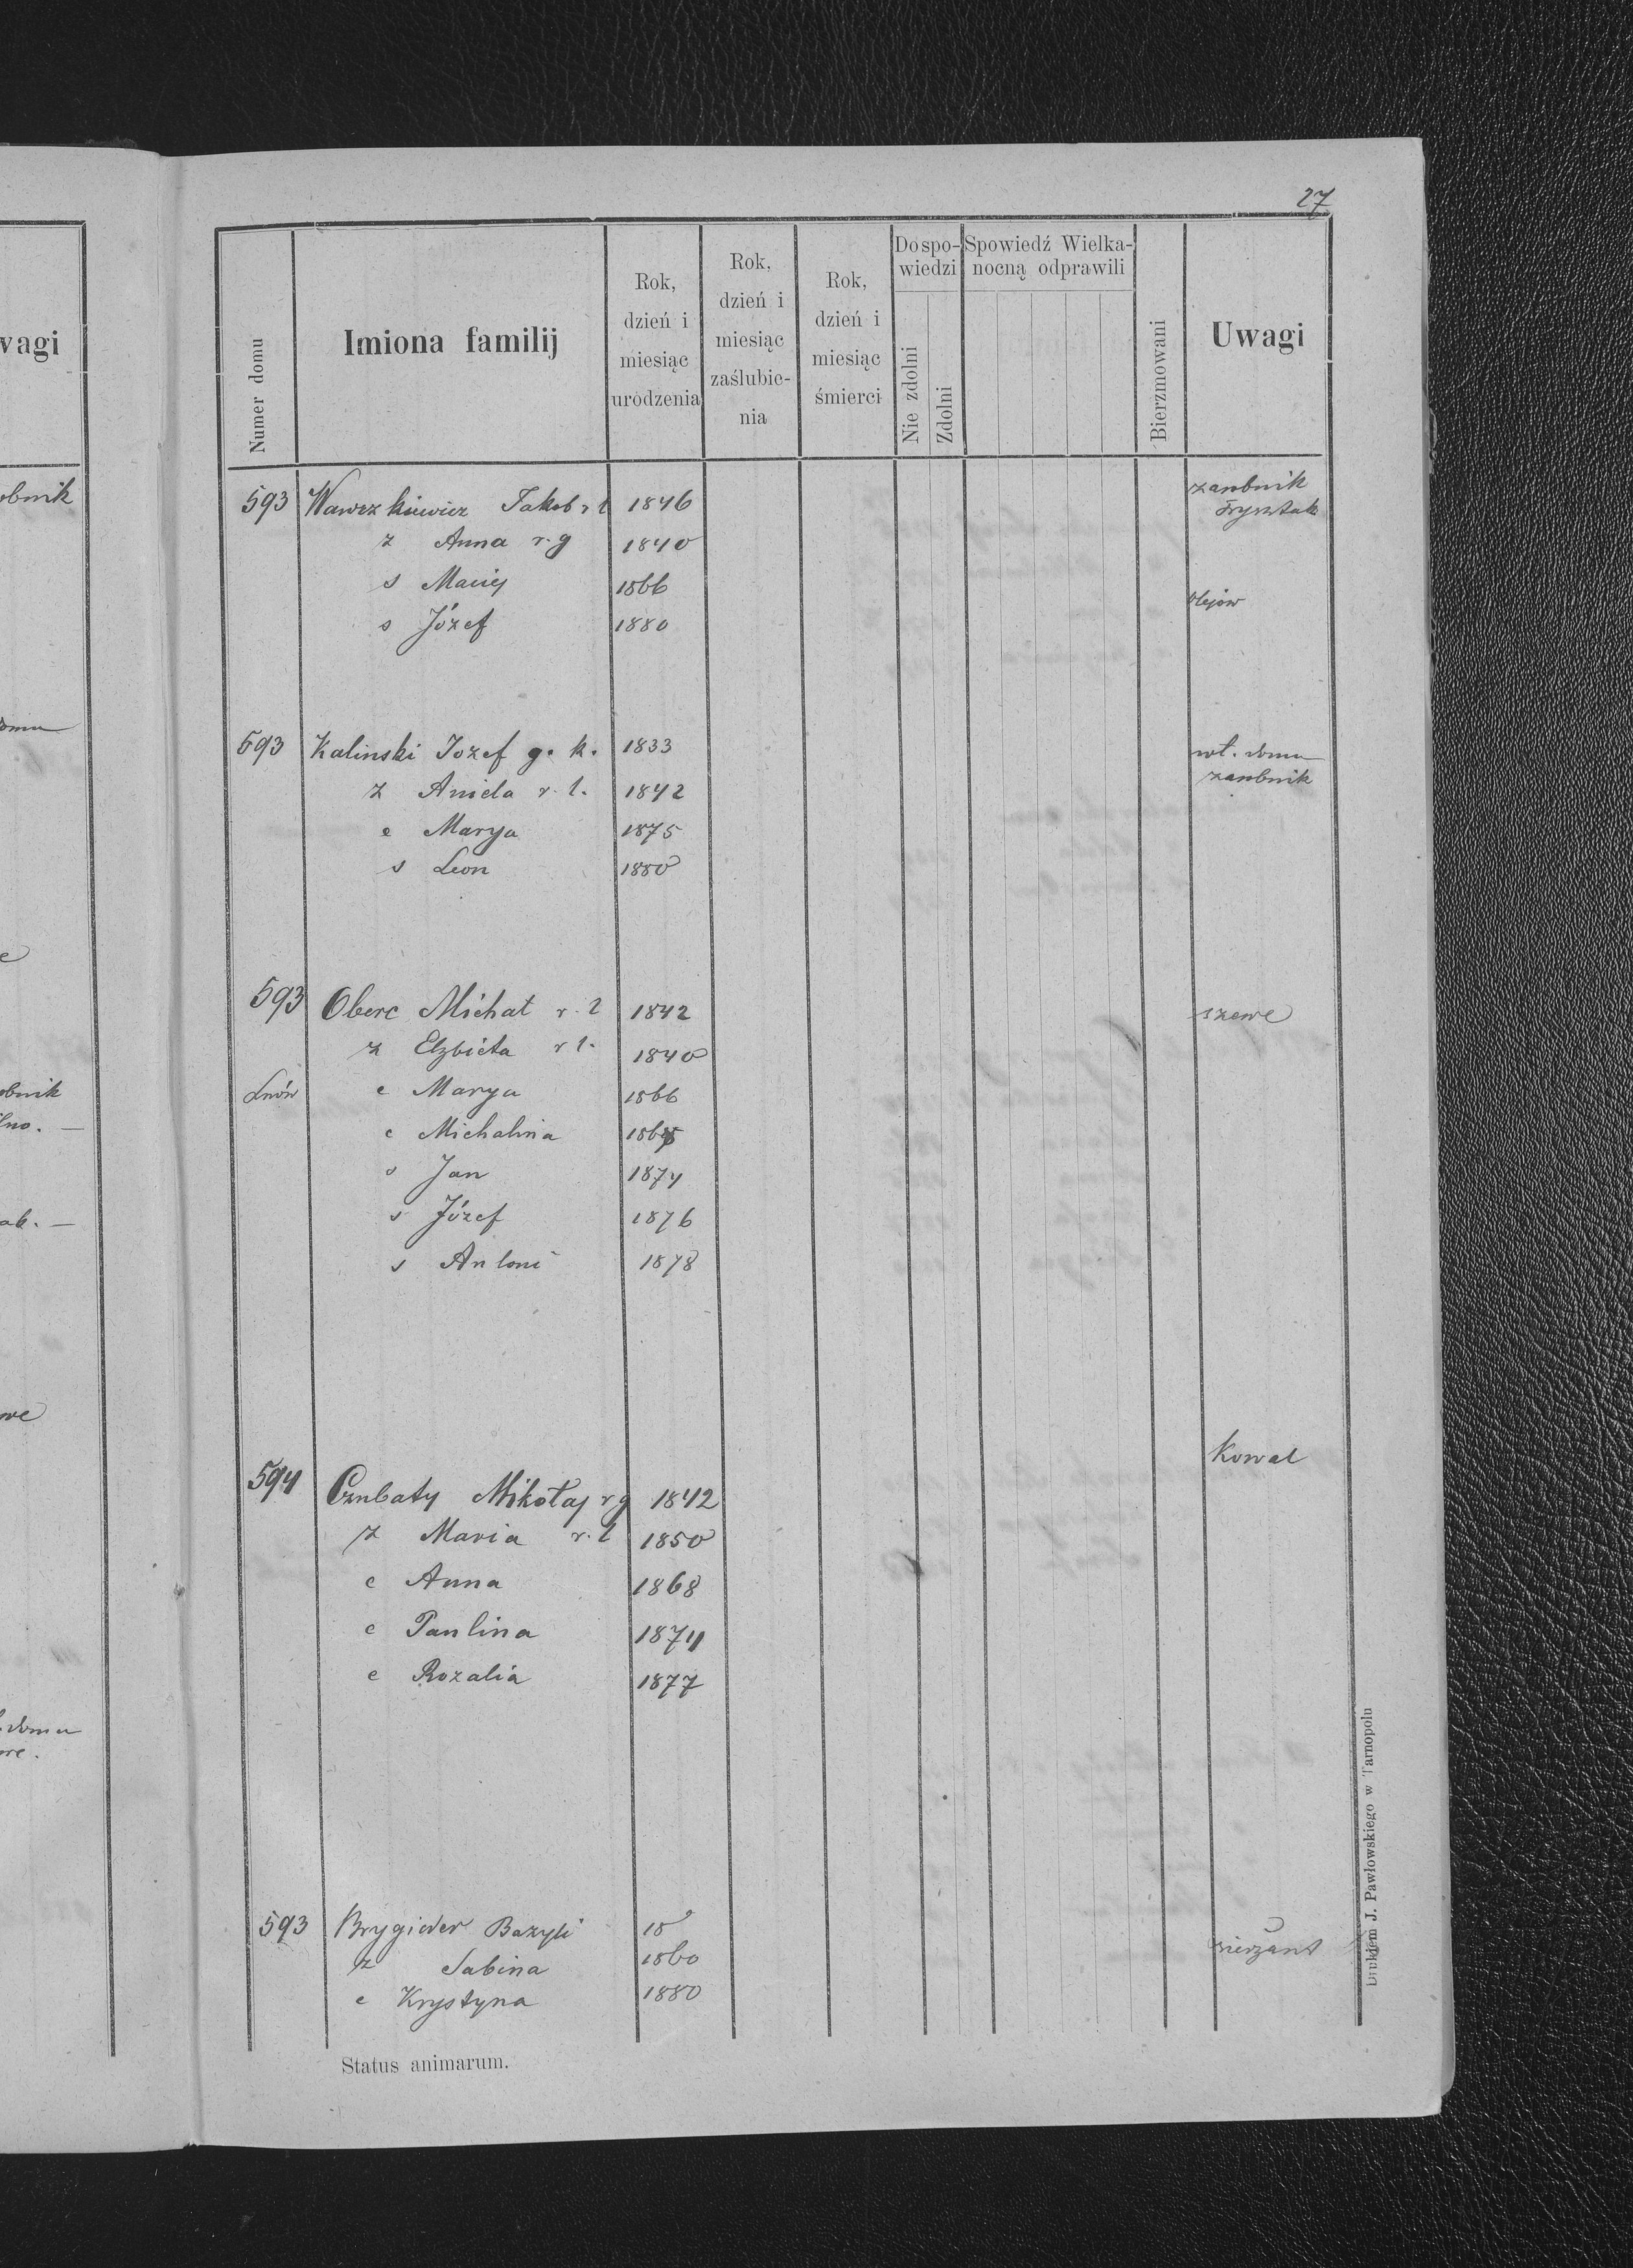 27
vagi
Numer domu
Imiona familij
Rok, dzień i miesiąc urodzenia
Rok, dzień i miesiąc zaślubie-nia
Rok, dzień i miesiąc śmierci
Do spo-wiedzi
Nie zdolni
Zdolni
Spowiedź Wielka-nocną odprawili
Bierzmowani
Uwagi
593 Wawrzkiewicz Jakob r l 1846 zarobnik
z Anna r. g 1840
s Maciej 1866 Olejów
s Józef 1880
593 Kalinski Jozef g. k. 1833 wł. domu
z Aniela r. l. 1842 zarobnik
c Marya 1875
s Leon 1880
593 Oberc Michał r. l 1842 szewc
z Elzbieta r l. 1840
Lwów c Marya 1866
c Michalina
s Jan 1874
s Józef 1876
s Antoni 1878
594 Czubaty Mikołaj r g 1842 Kowal
z Maria r. l 1850
c Anna 1868
c Paulina 1874
c Rozalia 1877
593 Brygider Bazyli 18 sierżant
z Sabina 1860
c Krystyna 1880
Status animarum.
Drukiem J. Pawłowskiego w Tarnopolu